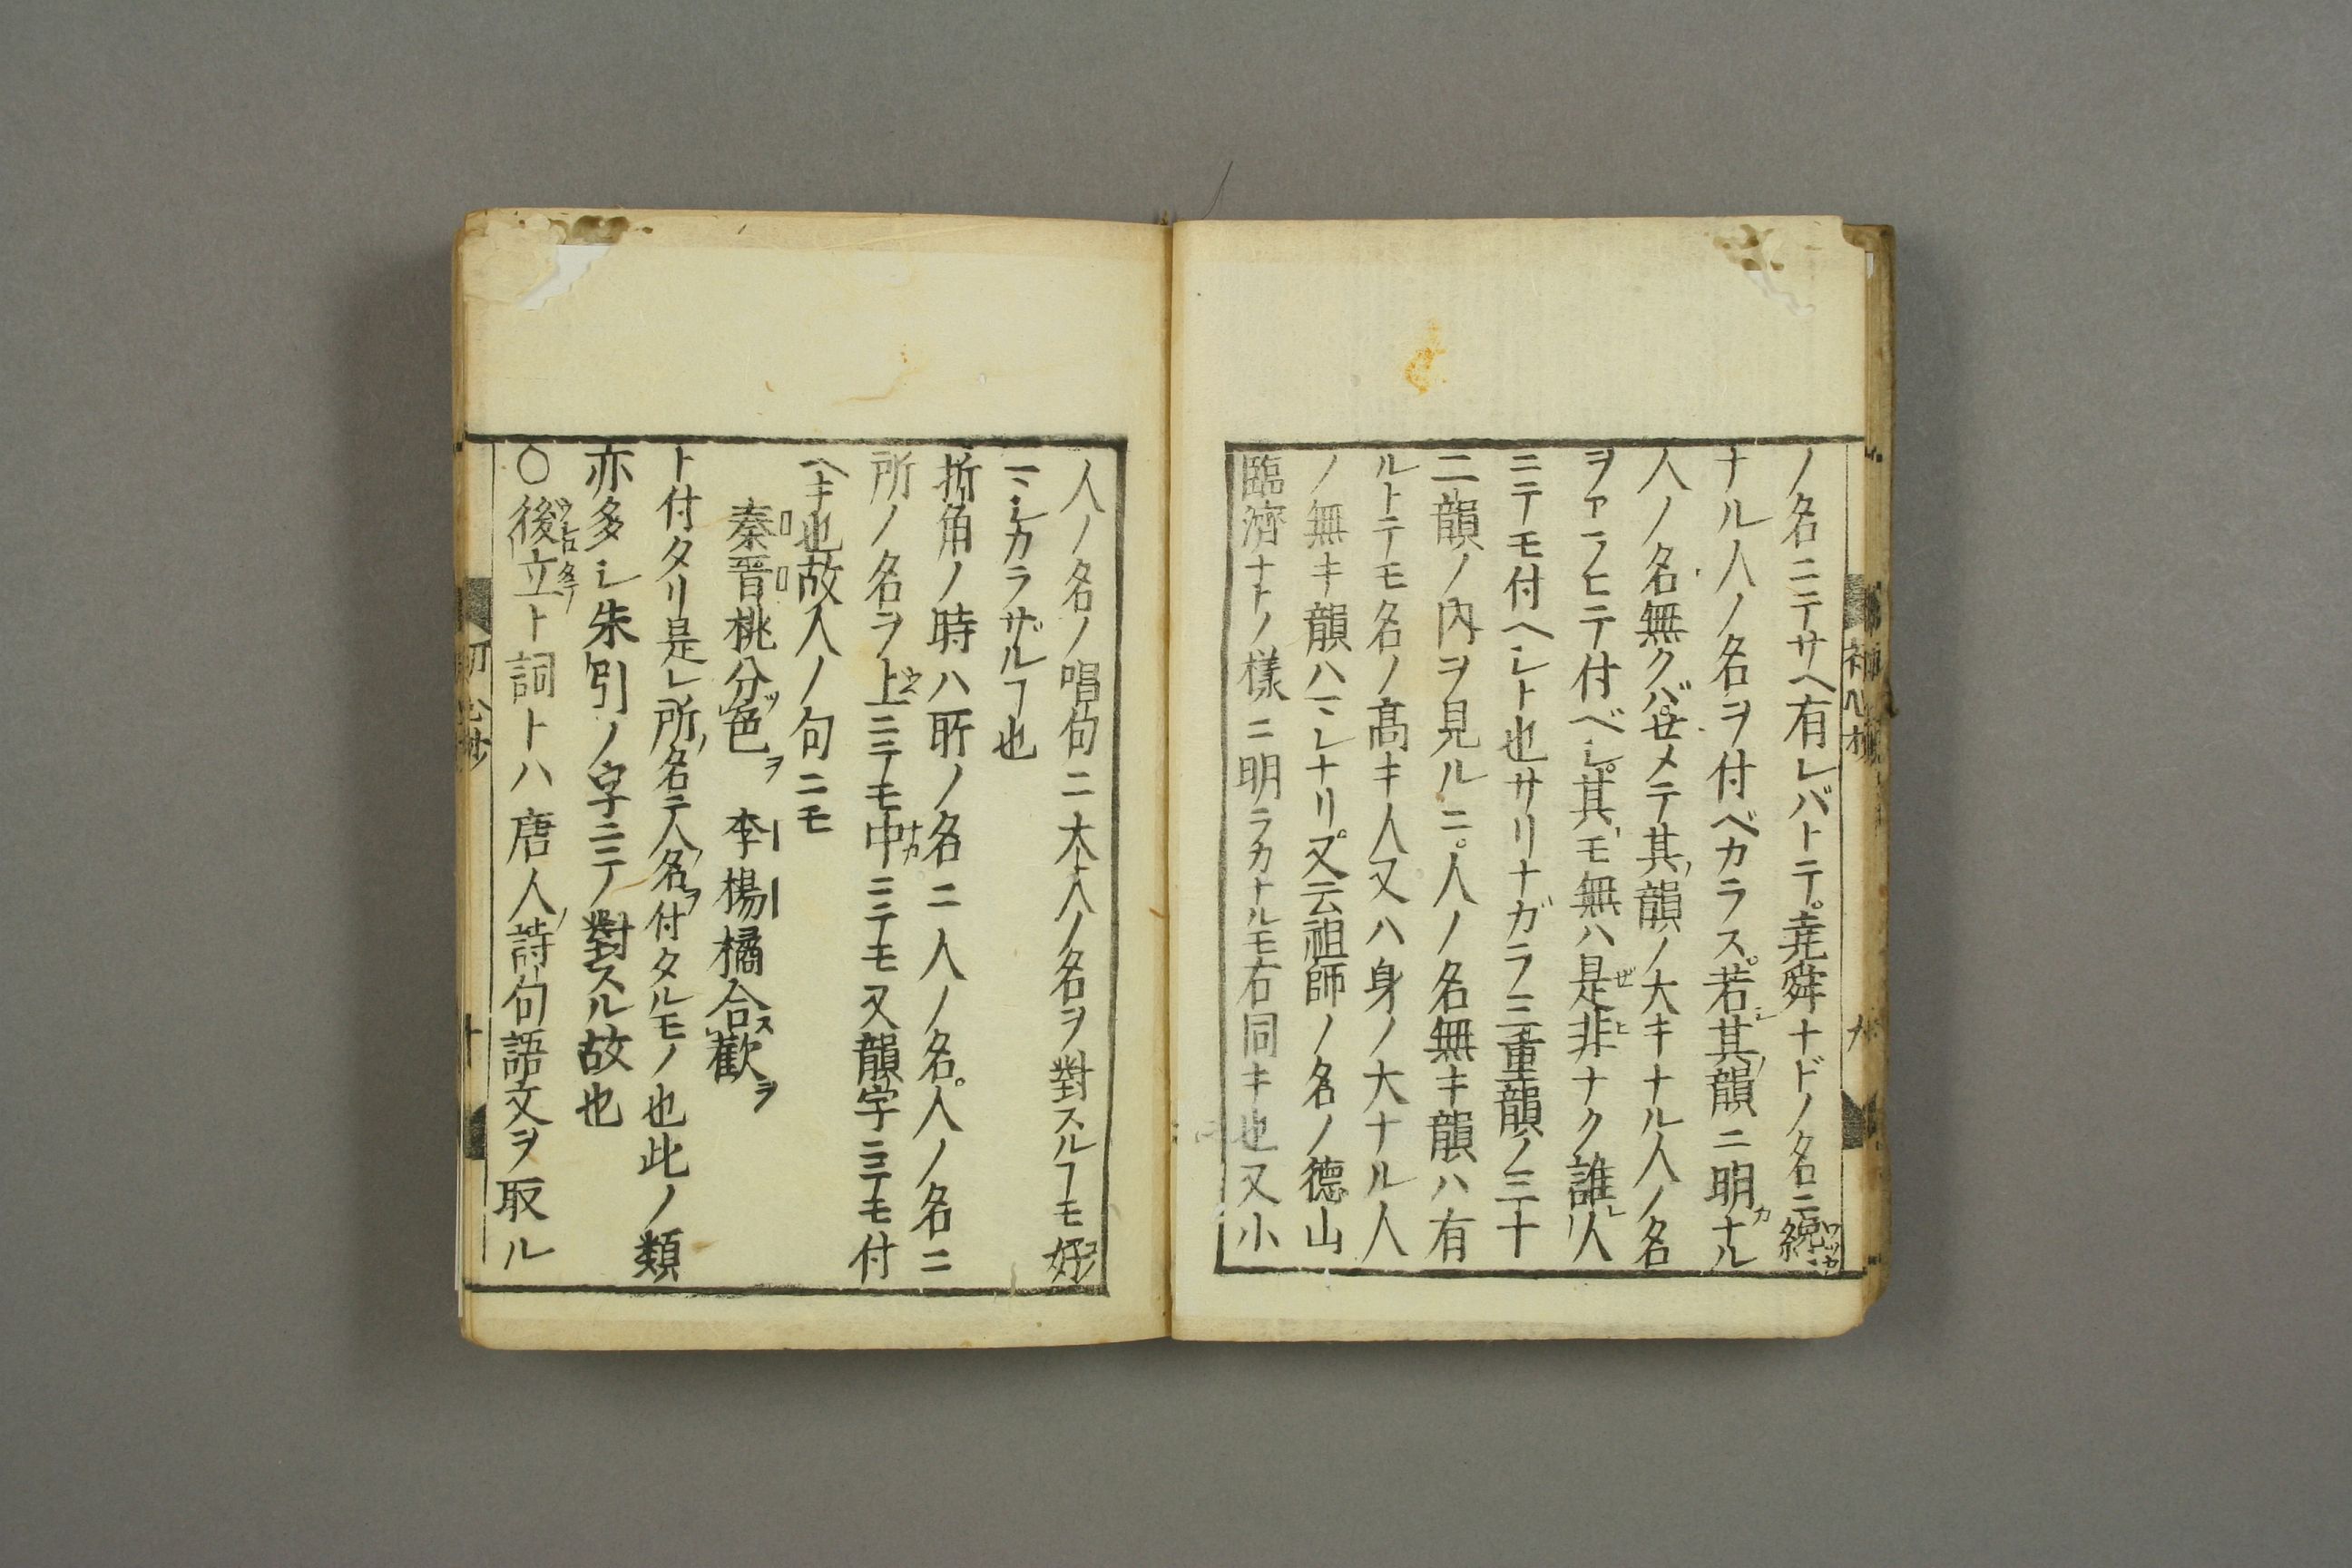 ノ名ニテサヘ有レバトテ。堯舜ナドノ名ニ纔
ナル人ノ名ヲ付ベカラス。若シ其ノ韻ニ明カナル
人ノ名無クバせメテ其ノ韻ノ大キナル人ノ名
ヲアラヒテ付ベシ。其モ無ハ是非ナク誰レ人
ニテモ付ヘシト也サリナガラ三重韻ノ三十
二韻ノ内ヲ見ルニ。人ノ名無キ韻ハ有
ルトテモ名ノ高キ人又ハ身ノ大ナル人
ノ無キ韻ハマレナリ。又云祖師ノ名ノ徳山
臨濟ナトノ様ニ明ラカナルモ右同キ也又小
人ノ名ノ唱句ニ大人ノ名ヲ對スルヿモ好
マシカラザルヿ也
折角ノ時ハ所ノ名ニ人ノ名。人ノ名ニ
所ノ名ヲ上ニテモ中ニテモ又韻字ニテモ付
ヘキ也故人ノ句ニモ
秦晋桃分ツ色ヲ 李楊橘合ス歡ヲ
ト付タリ是レ所ノ名テ人ノ名ヲ付タルモノ也此ノ類
亦多シ朱引ノ字ニテノ對スル故也
〇後立ト詞トハ唐人ノ詩句語文ヲ取ル
十